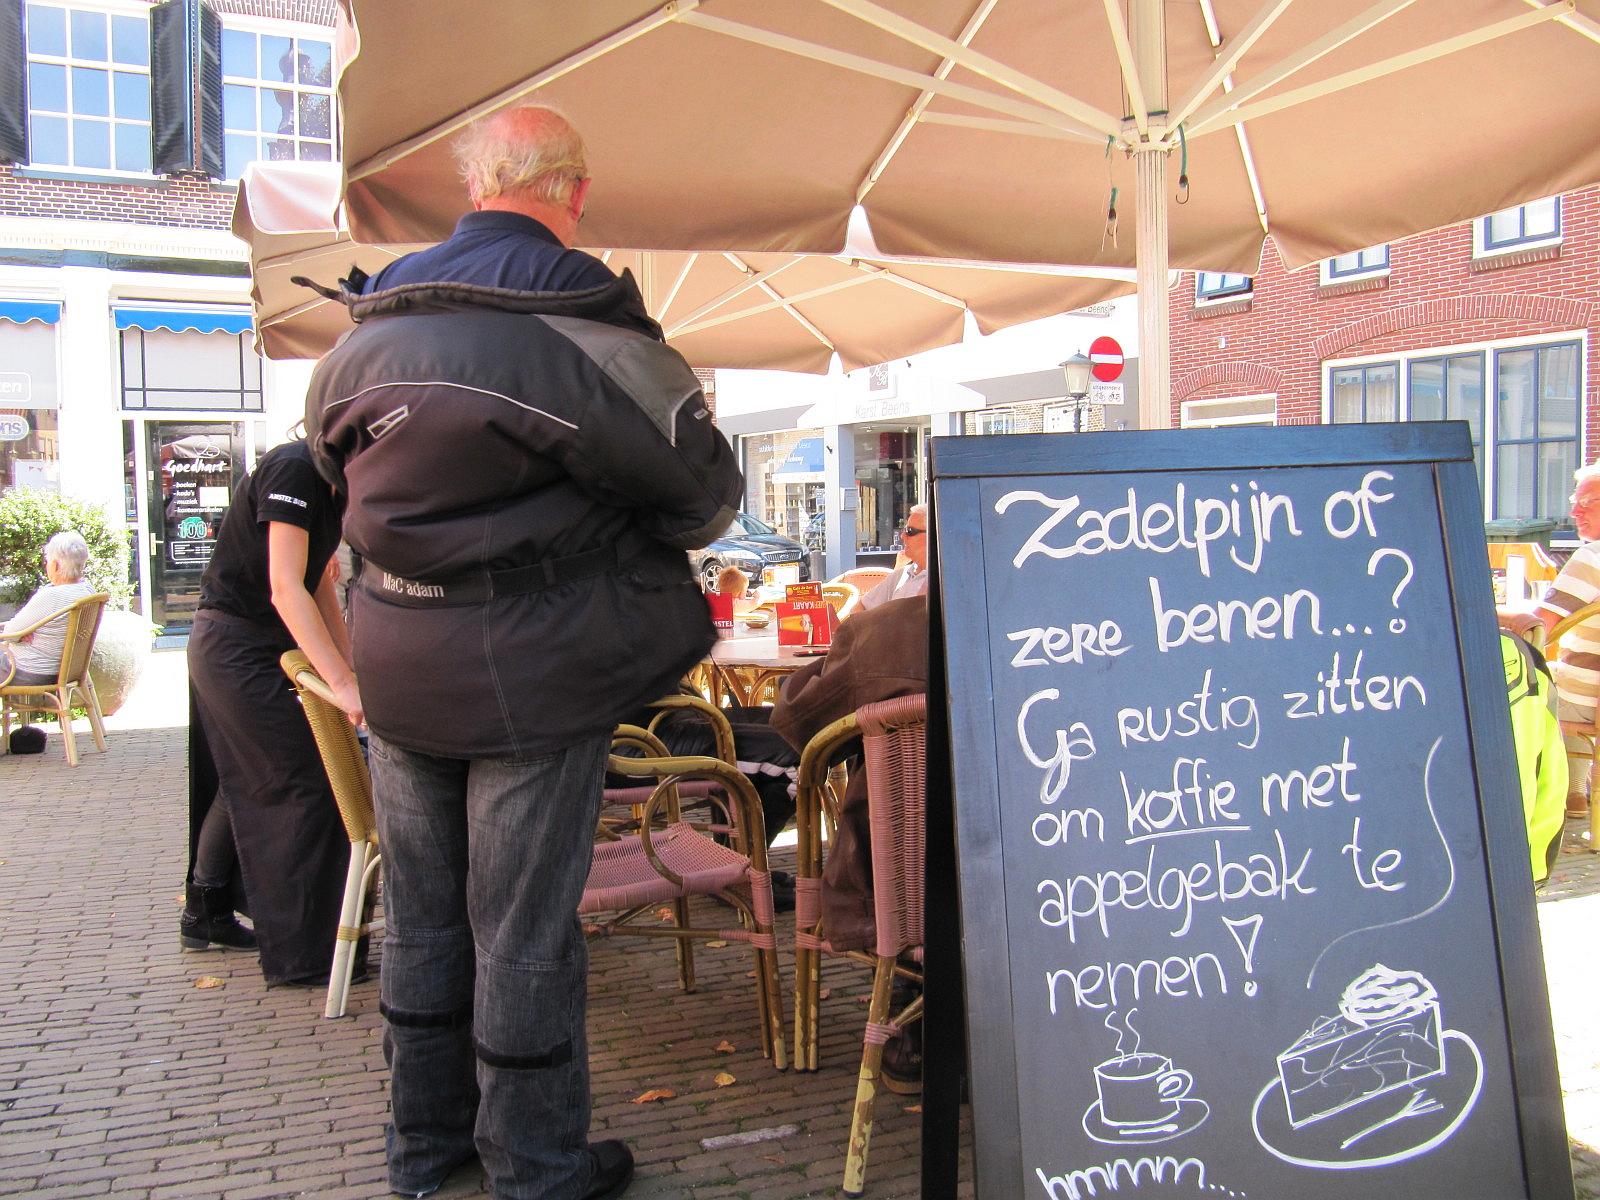 Zadelpijn of
zere benen...?
Ga rustig zitten
om koffie met
appelgebak te
nemen!
hmmm....
MaC adam
AMSTEL BIER
Goedhart
- boeken
- kado's
- muziek
- kantoorartikelen
100
Karst Beens
Beens
KAART